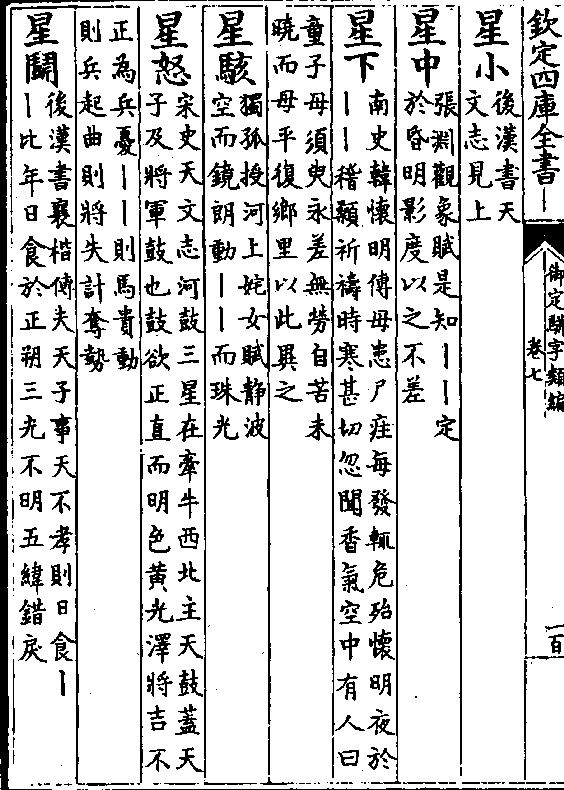 欽定四庫全書丨
御定駢字類編
卷七
一百
星小
後漢書天
文志見上
星中
張淵觀象賦是知丨丨定
於昏明影度以之不差
星下
南史韓懷明傳母患尸疰每發輒危殆懷明夜於
丨丨稽顙祈禱時寒甚切忽聞香氣空中有人曰
童子母須臾永差無勞自苦未
曉而母平復鄉里以此異之
星駭
獨孤授河上姹女賦静波
空而鏡朗動丨丨而珠光
星怒
宋史天文志河鼓三星在牽牛西北主天鼓蓋天
子及將軍鼓也鼓欲正直而明色黄光澤將吉不
正為兵憂丨丨則馬貴動
則兵起曲則將失計奪勢
星鬭
後漢書襄楷傳夫天子事天不孝則日食丨
丨比年日食於正朔三光不明五緯錯戾